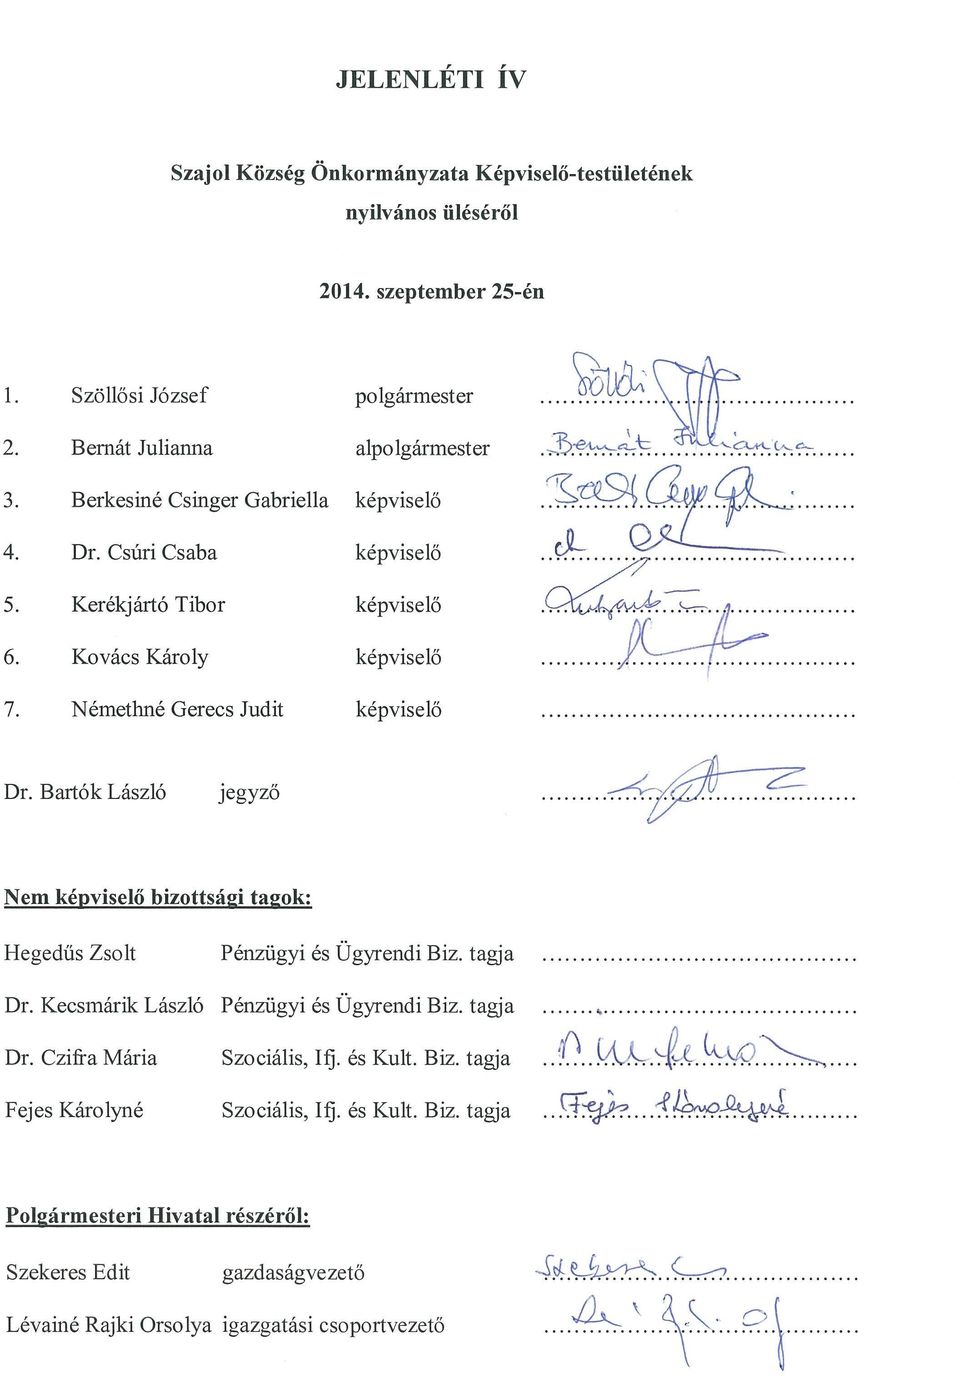 JELENLÉTI ÍV
Szajol Község Önkormányzata Képviselő-testületének
nyilvános üléséről
2014. szeptember 25-én
1. Szöllősi József polgármester
2. Bernát Julianna alpolgármester Bernát Julianna
3. Berkesiné Csinger Gabriella képviselő
4. Dr. Csúri Csaba képviselő
5. Kerékjártó Tibor képviselő
6. Kovács Károly képviselő
7. Némethné Gerecs Judit képviselő
Dr. Bartók László jegyző
Nem képviselő bizottsági tagok:
Hegedűs Zsolt Pénzügyi és Ügyrendi Biz. tagja
Dr. Kecsmárik László Pénzügyi és Ügyrendi Biz. tagja
Dr. Czifra Mária Szociális, Ifj. és Kult. Biz. tagja
Fejes Károlyné Szociális, Ifj. és Kult. Biz. tagja Fejes Károlyné
Polgármesteri Hivatal részéről:
Szekeres Edit gazdaságvezető Szekeres
Lévainé Rajki Orsolya igazgatási csoportvezető